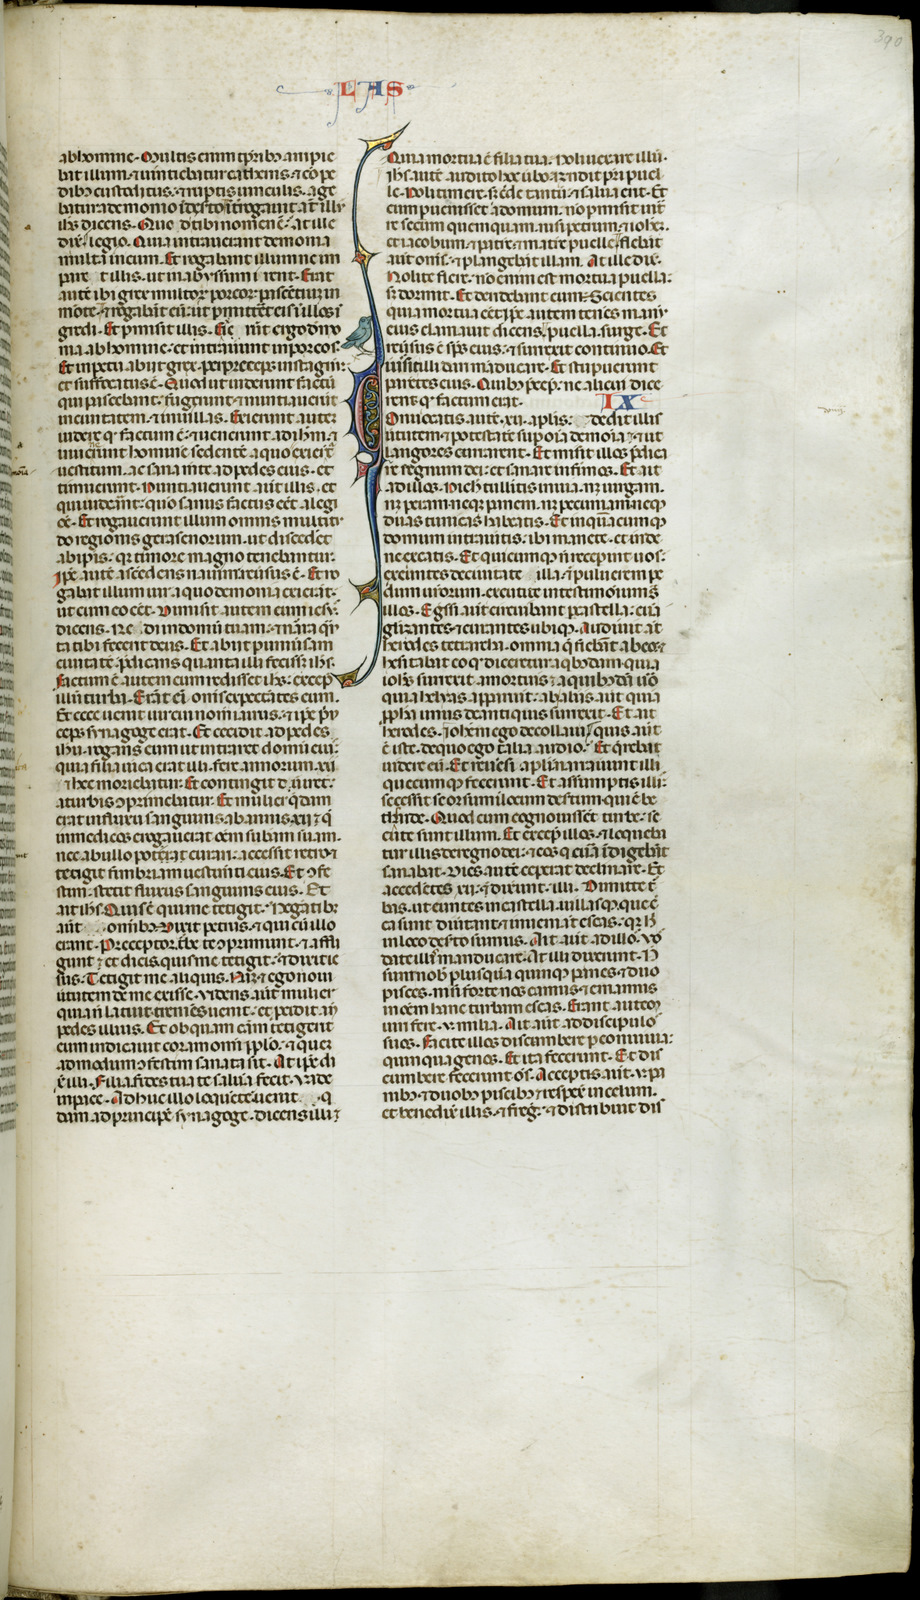 390
LAS
ab homine. Multis enim tp̄ribꝫ arripie
bat illum. ⁊ uinciebatur cathenis. ⁊ cōpe
dibꝫ custoditus. ⁊ ruptis uinculis. age
batur a demonio
ih̄s dicens. Quod tibi nomen ē. at ille
dix̄. legio. Quia intrauerant demonia
multa in eum. Et rogabant illum ne im
illis. ut in abyssum irent. Erat
autē ibi grex multoꝝ porcoꝝ pascētiū in
mōte. ⁊ rogabāt eū. ut ꝑmitterēt eis ī illos ī
gredi. Et ꝑmisit illis. ergo demo
nia ab homine. et intrauūt in porcos.
Et impetu abiit grex. per preceps in stagnū.
et suffocatus ē. Quod ut uiderunt factū
qui pascebant. fugerunt. ⁊ nuntiauerūt
in ciuitatem. ⁊ in uillas. Exierunt autē
uidere qͥ factum ē. ⁊ uenerunt ad ih̄m. ⁊
inuenerūt hominē sedentē a quo exierāt
uestitum. ac sana mēte ad pedes eius. et
timuerunt. Nuntiauerunt aūt illis. et
qui uiderāt. quo sanus factus eēt a legi
oē. Et rogauerunt illum omnis multitu
do regionis gerasenorum. ut discedet
ab ipis. qꝛ timore magno tenebantur.
Ip̄e autē ascedens nauim reūsus ē. Et ro
gabat illum uir a quo demonia exierāt.
ut cum eo eēt. Dimisit autem eum ih̄s.
dicens. Redi in domū tuam. ⁊ narra qͣn
ta tibi fecerit deus. Et abiit ꝑ uniūsam
ciuitatē. p̄dicans quanta illi fecisset ih̄s.
Factum ē autem cum redisset ih̄s. excep
illū turba. Erāt eī om̄s expectātes eum.
Et ecce uenit uir cui nom̄ iairus. ⁊ ip̄e pͥn
ceps synagoge erat. Et cecidit ad pedes
ih̄u rogans eum ut intraret domū eiꝰ.
quia filia unica erat illi. fere annorum xii
⁊ hec moriebatur. Et contingit dū iret.
a turbis ↄprimebatur. Et mulier qͣdam
erat in fluxu sanguinis ab annis xii. ⁊ qͣ
in medicos erogauerat oēm subam suam.
nec ab ullo potᷣat curari. accessit retro ⁊
tetigit fimbriam uestimti eius. Et ↄfe
stim. stetit fluxus sanguinis eius. Et
ait ih̄s. Quis ē qui me tetigit. Negātibꝫ
aūt omībꝫ. Dixit petrus. ⁊ qui cū illo
erant. Preceptor. tꝰbe te ↄprimunt. ⁊ affli
gunt. ⁊ et dicis quis me tetigit. ⁊ dixit ie
sus. Tetigit me aliquis. Nā ⁊ ego noui
uirtutem de me exisse. Videns aūt mulier
quia nō latuit. tremēs uenit. et ꝓcidit añ
pedes illius. Et ob quam cām tetigerit
eum indicauit coram omī pplo. ⁊ quem
admodum ↄfestim sanata sit. At ip̄e di
x̄ illi. Filia. fides tua te saluā fecit. Vade
in pace. Adhuc illo loquēte uenit q
dam ad principē synagoge. dicens illi ⁊
Quia mortua ē filia tua. noli uexare illū.
Ih̄s autē audito hoc uerbo. rn̄dit pͣtri puel
le. Noli timere. cͬede tantū. ⁊ salua erit. Et
cum puenisset ad domum. nō ꝑmisit int̄
re secum quemquam. nisi petrum ⁊ ioh̄ez.
et iacobum. ⁊ patrē ⁊ matrē puelle. Flebāt
aūt om̄s. ⁊ plangebāt illam. At ille dix̄.
Nolite flere. nō enim est mortua puella.
sꝫ dormit. Et deridebant eum. Scientes
quia mortua eēt. ip̄e autem tenēs manū
eius clamauit dicens. puella surge. Et
reūsus ē sp̄s eius. ⁊ surrexit continuo. Et
iussit illi dari maducare. Et stupuerunt
parētes eius. Quibꝫ p̄cep. ne alicui dice
rent qͦ factum erat. IX
Conuocatis autē .xii. aplis. dedit illis
uirtutem ⁊ potestatē sup oīa demōīa. ⁊ ut
langores curarent. Et misit illos p̄dica
re regnum dei. et sanare infirmos. Et ait
ad illos. Nichil tulitis in uia. nꝫ uirgam.
nꝫ peram. neqꝫ panem. nꝫ pecuniam. neqꝫ
duas tunicas habeatis. Et in quācumqꝫ
domum intraueritis. ibi manete. et inde
ne exeatis. Et quicumqꝫ nō receperint uos.
exeuntes de ciuitate illa. ⁊ puluerem pe
dum ur̄orum. excutite in testimoniū s̄
illos. Egssi aūt circuibant ꝑ castella. euā
gelizantes. ⁊ curantes ubiqꝫ. Audiuit aūt
herodes tetrarcha. omnia qͣ fiebāt ab eo. ⁊
hesitabat eo qͦ diceretur a qͥbꝫdam. quia
ioh̄s surrexit a mortuis. ⁊ a quibꝫdā uō
quia helyas apparuit. ab aliis aūt quia
pph̄a unus de antiquis surrexit. Et ait
herodes. Ioh̄em ego decollaui. quis aūt
ē iste. de quo ego talia audio. Et qͣrebat
uidere eū. Et reūsi apli narrauerunt illi
quecumqꝫ fecerunt. Et assumptis illis.
secessit seorsum in locum desertum. qui ē be
thsaide. Quod cum cognouissēt turbe. se
cute sunt illum. Et excepit illos. ⁊ loqueba
tur illis de regno dei. ⁊ eos qͥ cura īdigebāt
sanabat. Dies autē ceperat declinare. Et
accedētes xii. dixerunt illi. Dimitte tͬ
bas. ut euntes in castella. uillasqꝫ que cͥ
ca sunt diuertant. ⁊ inueniāt escas. qꝛ hͥ
in loco deserto sumus. Ait aūt ad illos. Vos
date illis manducare. At illi dixerunt. Nō
sunt nobꝫ plus quā quinqꝫ panes. ⁊ duo
pisces. nisi forte nos eamus. ⁊ emamus
in oēm hanc turbam escas. Erant autē
uiri fere .v. milia. Ait aūt ad discipulos
suos. Facite illos discumbere ꝑ conuiuia.
quinquagenos. Et ita fecerunt. Et dis
cumbere fecerunt om̄s. Acceptis aūt .v. pa
nibꝫ. ⁊ duobꝫ piscibꝫ. ⁊ respex̄ in celum.
et benedix̄ illis. ⁊ fregᷣ. ⁊ distribuit dis